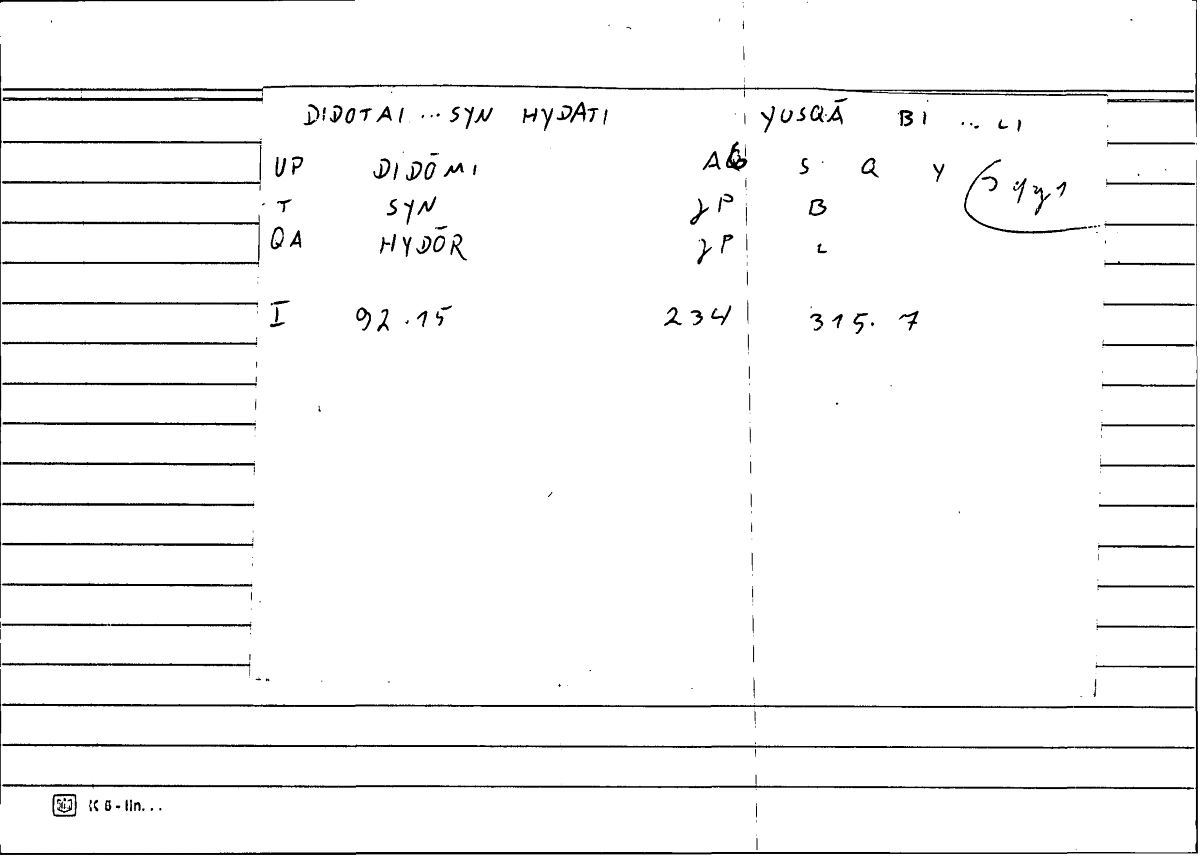 DIDOTAI ... SYN HYDATI YUSQĀ BI ... LI
UP DIDŌMI A S Q Y
T SYN P B
QA HYDŌR P L
I 92.15 234 315.7
K 6 - lin...